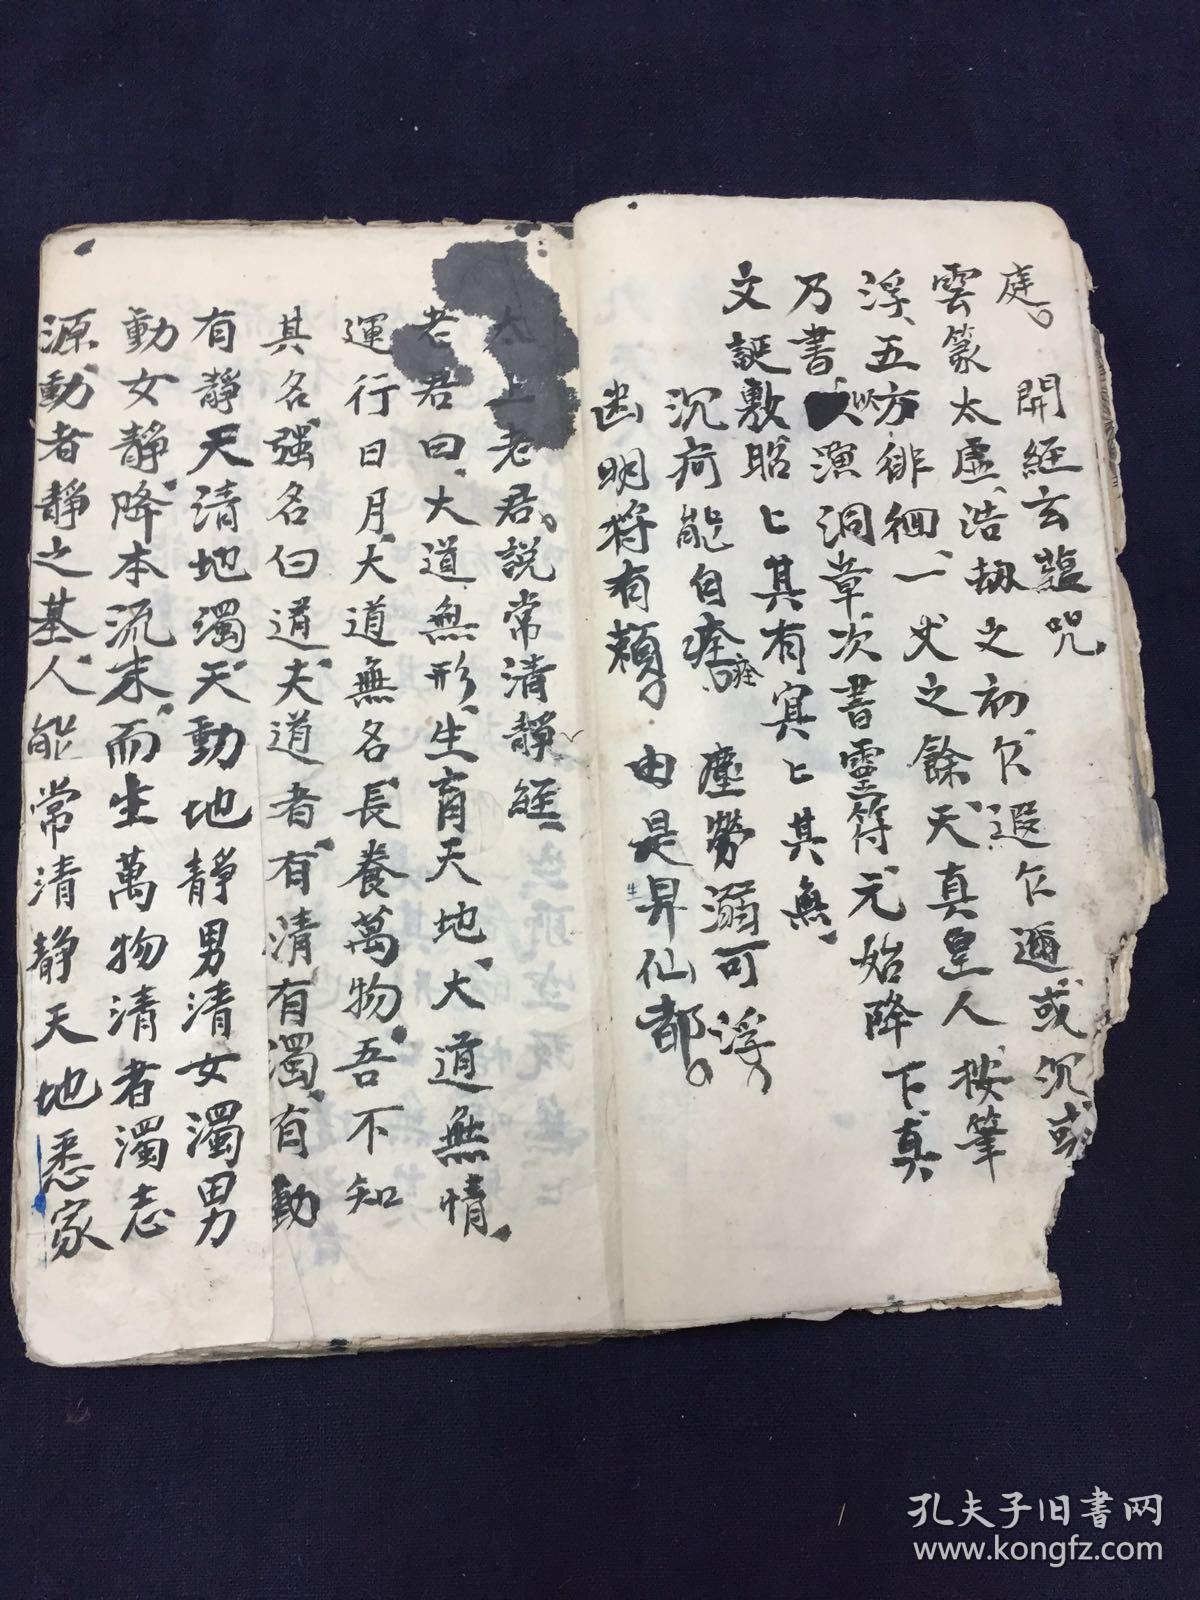 庭
開經玄蘊咒
雲篆太虛浩劫之初乍遐乍邇或沉或
浮五方徘徊一丈之餘天真皇人按筆
乃書以演洞章次書靈符元始降下真
文誕敷昭匕其有冥匕其無
沉疴能自痊 塵勞溺可浮
痊
幽明将有賴 由是昇仙都
生
太上老君説常清靜經
老君曰大道無形生育天地大道無情
運行日月大道無名長養萬物吾不知
其名強名曰道夫道者有清有濁有動
有靜天清地濁天動地靜男清女濁男
動女靜降本流末而生萬物清者濁志
源動者靜之基人能常清靜天地悉家
孔夫子旧书网
www.kongfz.com